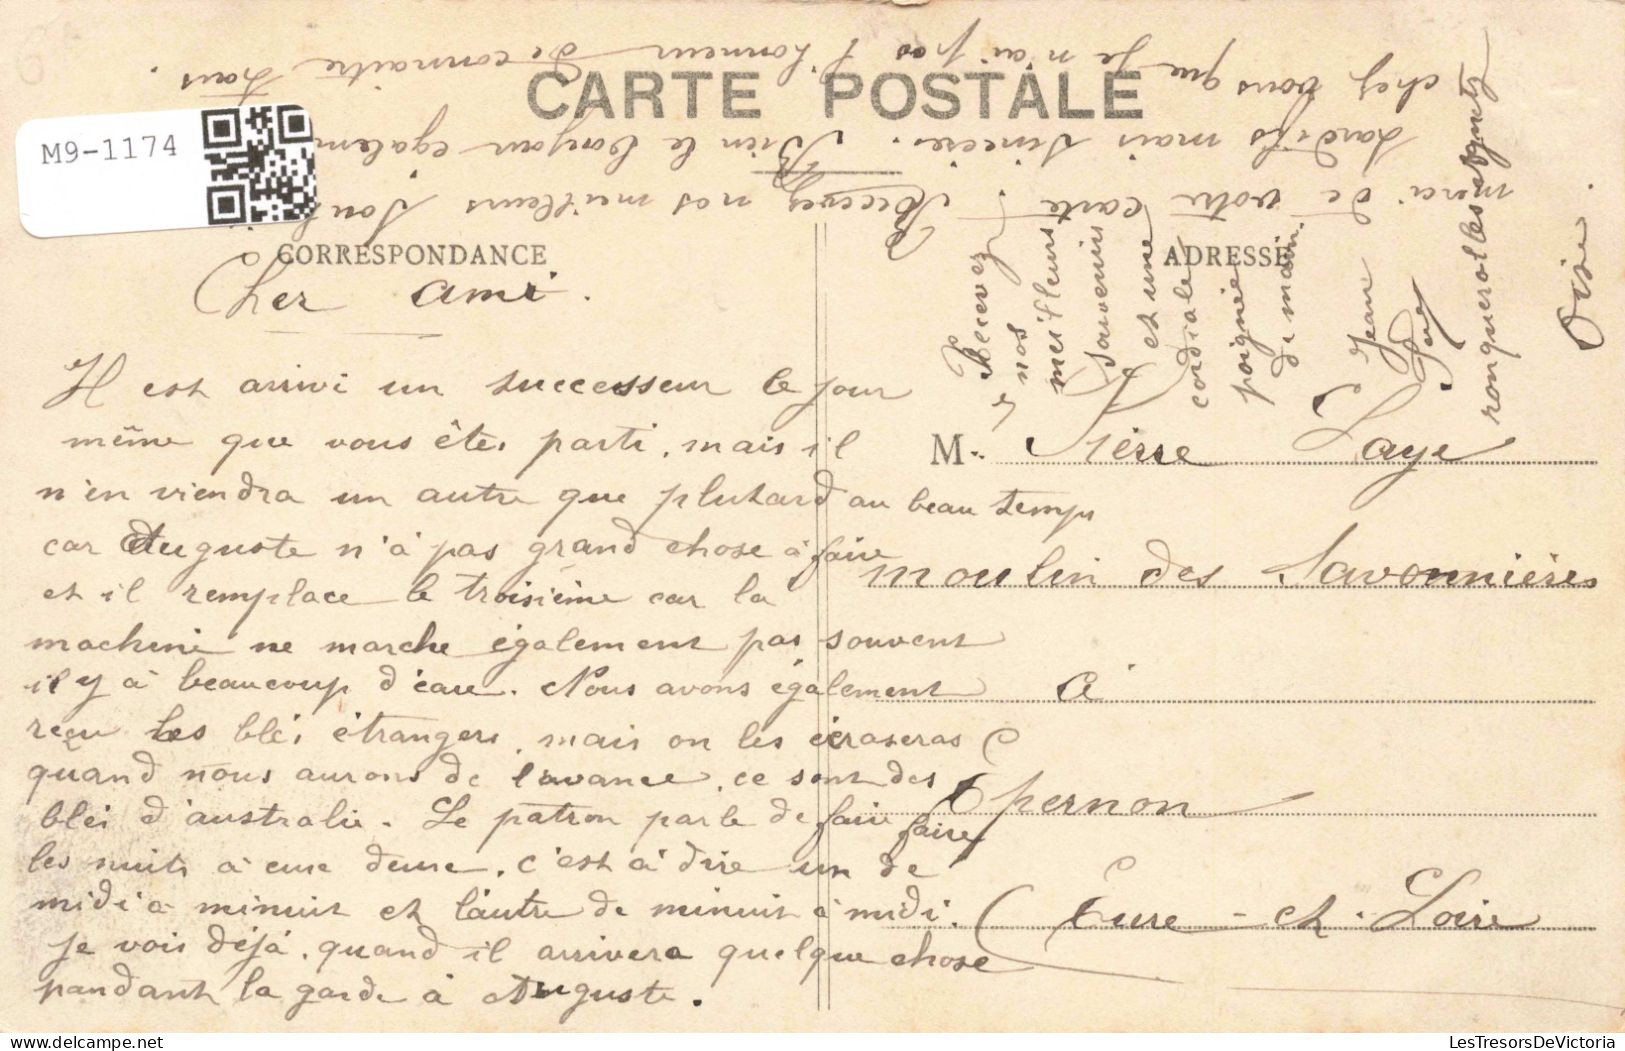 CARTE POSTALE
M9-1174
CORRESPONDANCE
ADRESSE
Cher ami.
Il est arrivé un successeur le jour
même que vous êtes parti, mais il
n'en viendra un autre que plutard au beau temps
car Auguste n'à pas grand chose à faire
et il remplace le troisième car la
machine ne marche également pas souvent
il y à beaucoup d'eau. Nous avons également
reçu les blés étrangers, mais on les écraseras
quand nous aurons de l'avance, ce sont des
blés d'australie. Le patron parle de faire faire
les nuits à eux deux, c'est à dire un de
midi à minuit et l'autre de minuit à midi.
je vois déjà, quand il arrivera quelque chose
pandant la garde à Auguste.
merci de votre carte. Recevez nos meilleurs
tardifs mais sincères. Bien le bonjour egalem
chez vous que je n'ai pas l'honneur de connaitre
Recevez
nos
meilleurs
souvenirs
et une
cordiale
poignée
de main.
Jean
ronquerolles
Oise.
M. Pierre Laye
moulin des Savonnières
à
Epernon
Eure-et-Loire
LesTresorsDeVictoria.com